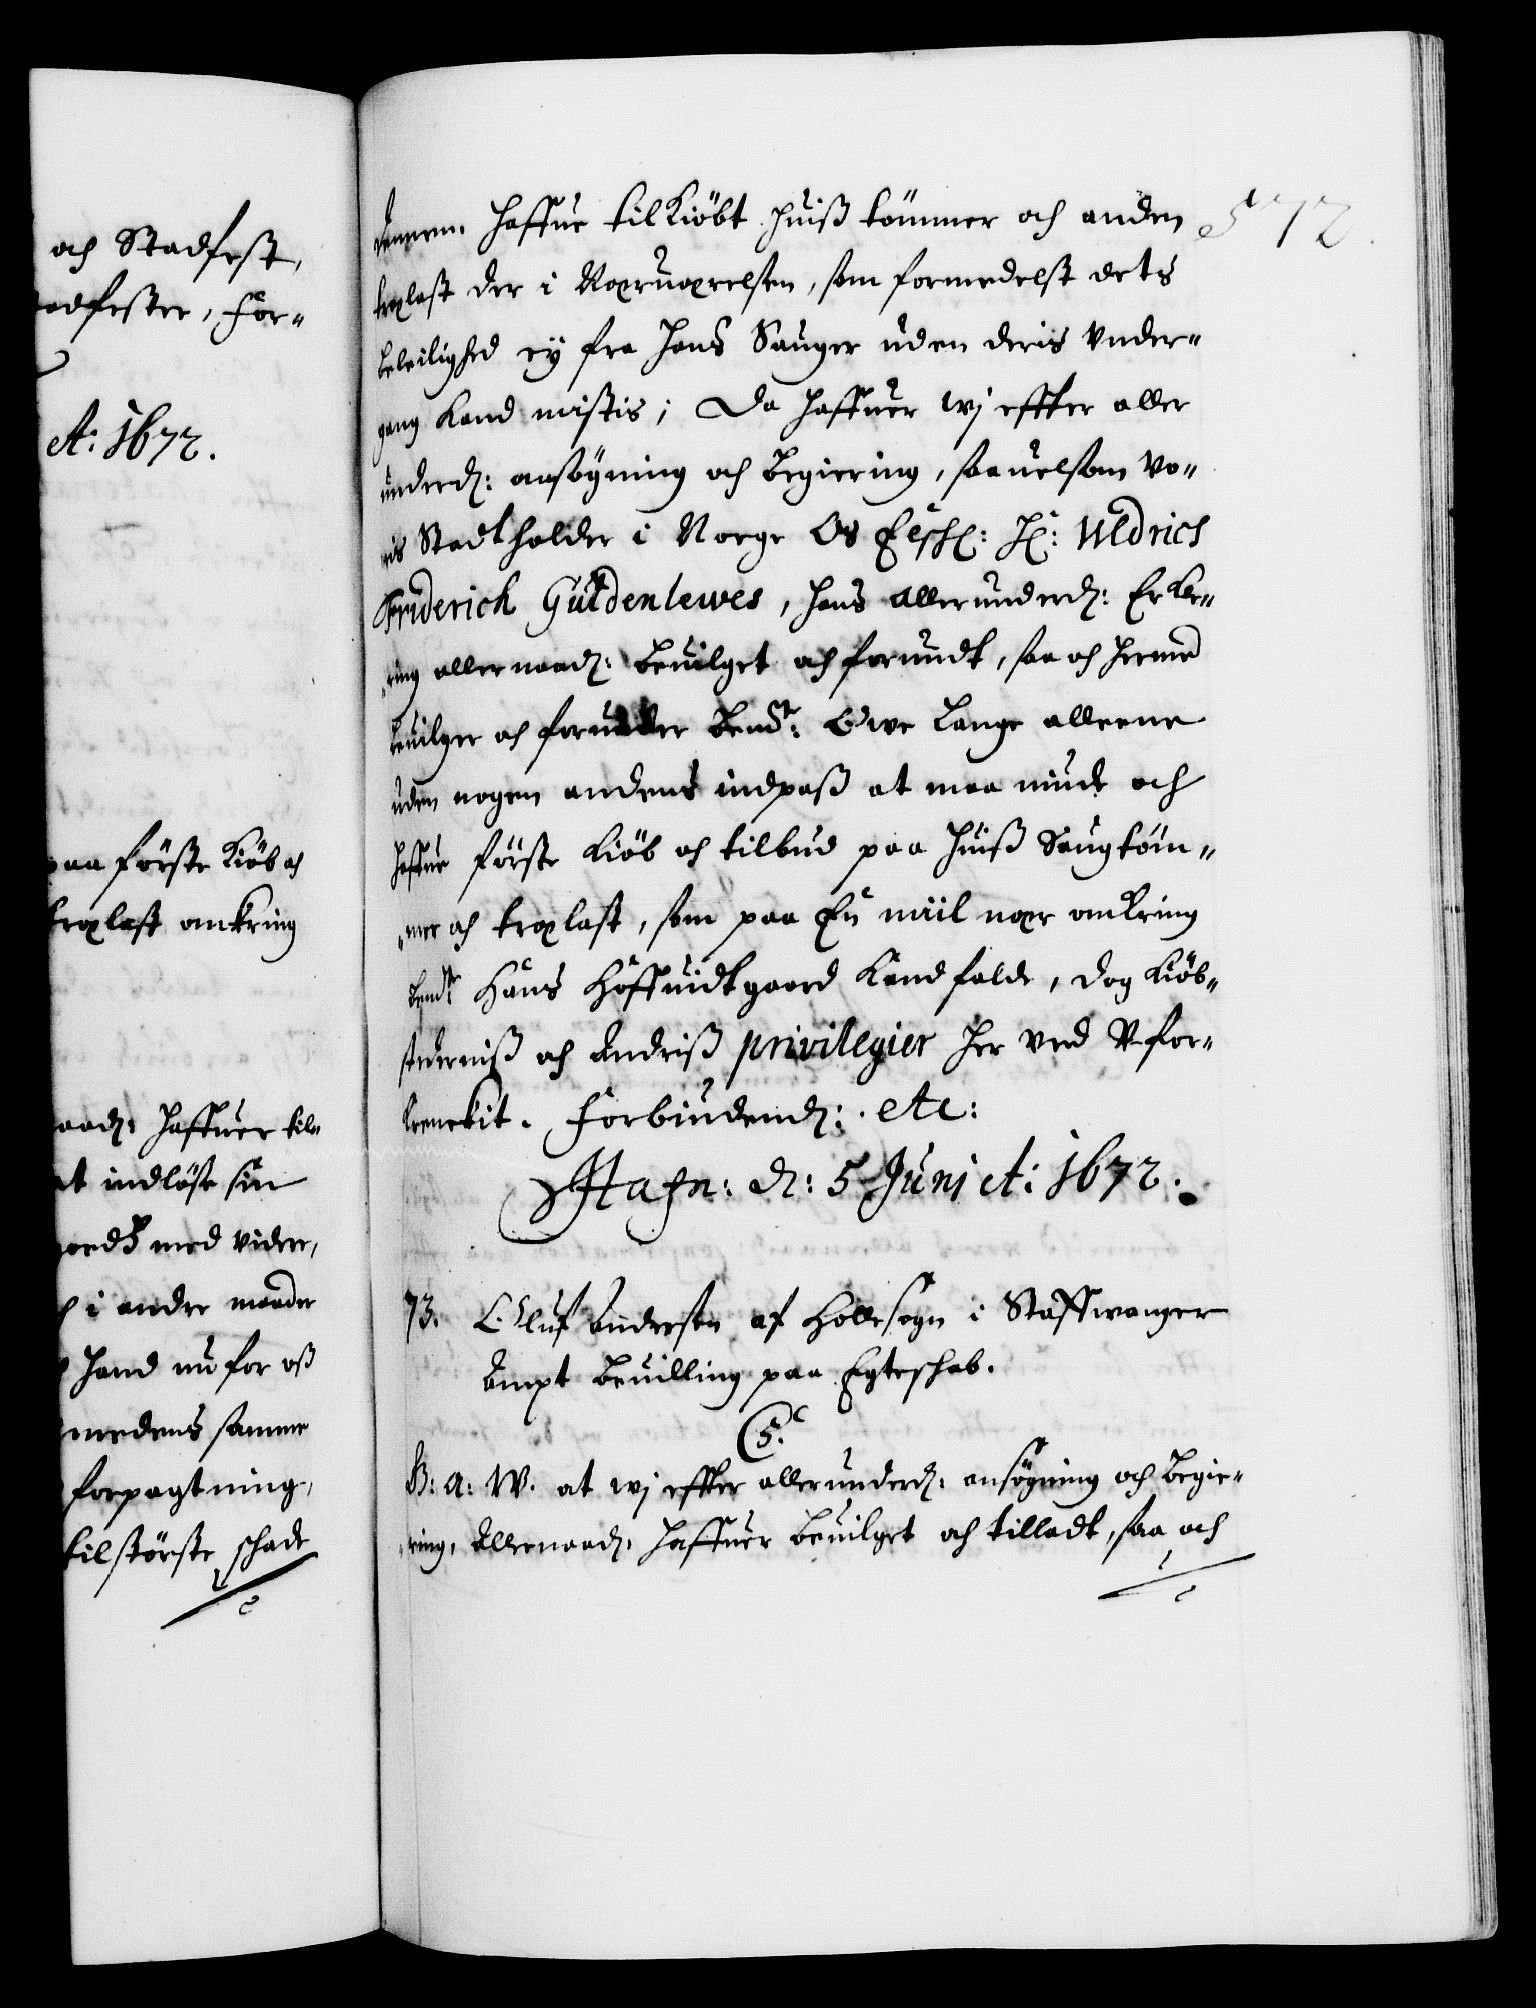 och Stadfest,
adfester, For-
A: 1672.
paa förste Kiöb och
troxlast omkring
naad: Haffuer til-
at indlöse sin
medens samme
i andre maader
Hand nu for oß
forpagtning,
til störste schade
572.
Haffue tilKiöbt huiß tömmer och anden
troxlast der i Noxruoxrelsen, som formedelst dets
beleilighed ey fra Hans Sauger uden deris Vnder-
gang Kand mistis; Da Haffuer wj effter aller
underd: ansögning och Begiering, saauelsom Vo-
ris Stadtholder i Norge Os Elschel: H: Uldrich
Friderich Güldenlewes, Hans allerunderd: Erkle-
ring allernaad: Beuilget och forundt, saa och Hermed
Beuilger och forunder Bemt: Owe Lange alleene
uden nogen andens indpaß at maa niude och
Haffue förste Kiöb och tilbud paa huiß Saugtöm-
mer och troxlast, som paa En miil noxr omkring
bemt: Hans Höffuidtgaard Kand falde, dog Kiöb-
stederniß och Andriß privilegier Her Ved V-for-
krenckit. Forbiudend: etc:
Hafn: d: 5 Junj A: 1672.
73. Oluf Andersen af Hollesogn i Staffwanger
Ampt Beuilling paa Egteschab.
C 5.
G: A: W. at wj effter allerunderd: ansögning och Begie-
ring, Allernaad: Haffuer Beuilget och tilladt, saa och